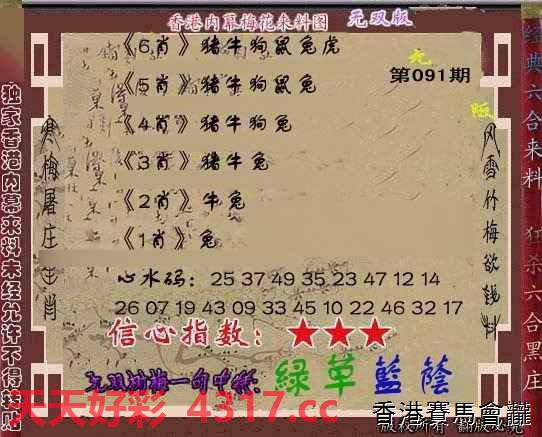 香港内幕梅花来料图 无双版
《6肖》猪牛狗鼠兔虎
第091期
《5肖》猪牛狗鼠兔
《4肖》猪牛狗兔
《3肖》猪牛兔
《2肖》牛兔
《1肖》兔
心水码：25 37 49 35 23 47 12 14
26 07 19 43 09 33 45 10 22 46 32 17
信心指数：★★★
一句中
綠草藍蔭
天天好彩 4317.cc
香港賽馬會
版权所有 翻版必究
独家香港内幕来料未经允许不得转贴
寒梅屠庄生肖
风雪竹梅欲钱料
经典六合来料 狂杀六合黑庄